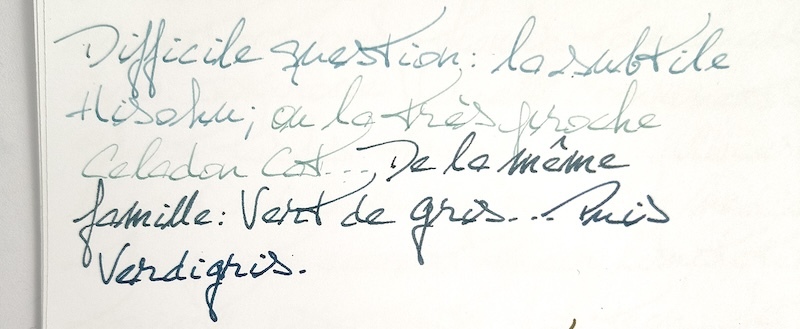 Difficile question : la subtile
Hisoku ; ou la très proche
Celadon Cat... De la même
famille : Vert de gris... Puis
Verdigris.